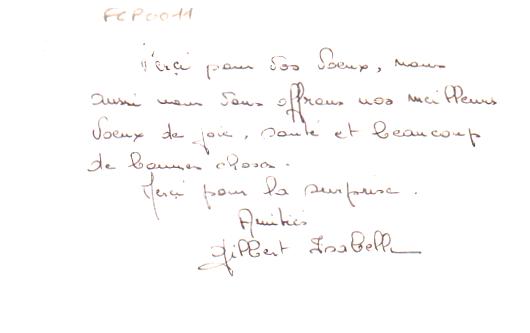 FCP0011
Merci pour vos voeux, nous
aussi nous vous offrons nos meilleurs
voeux de joie, santé et beaucoup
de bonnes choses.
Merci pour la surprise.
Amitiés
Gilbert Isabelle